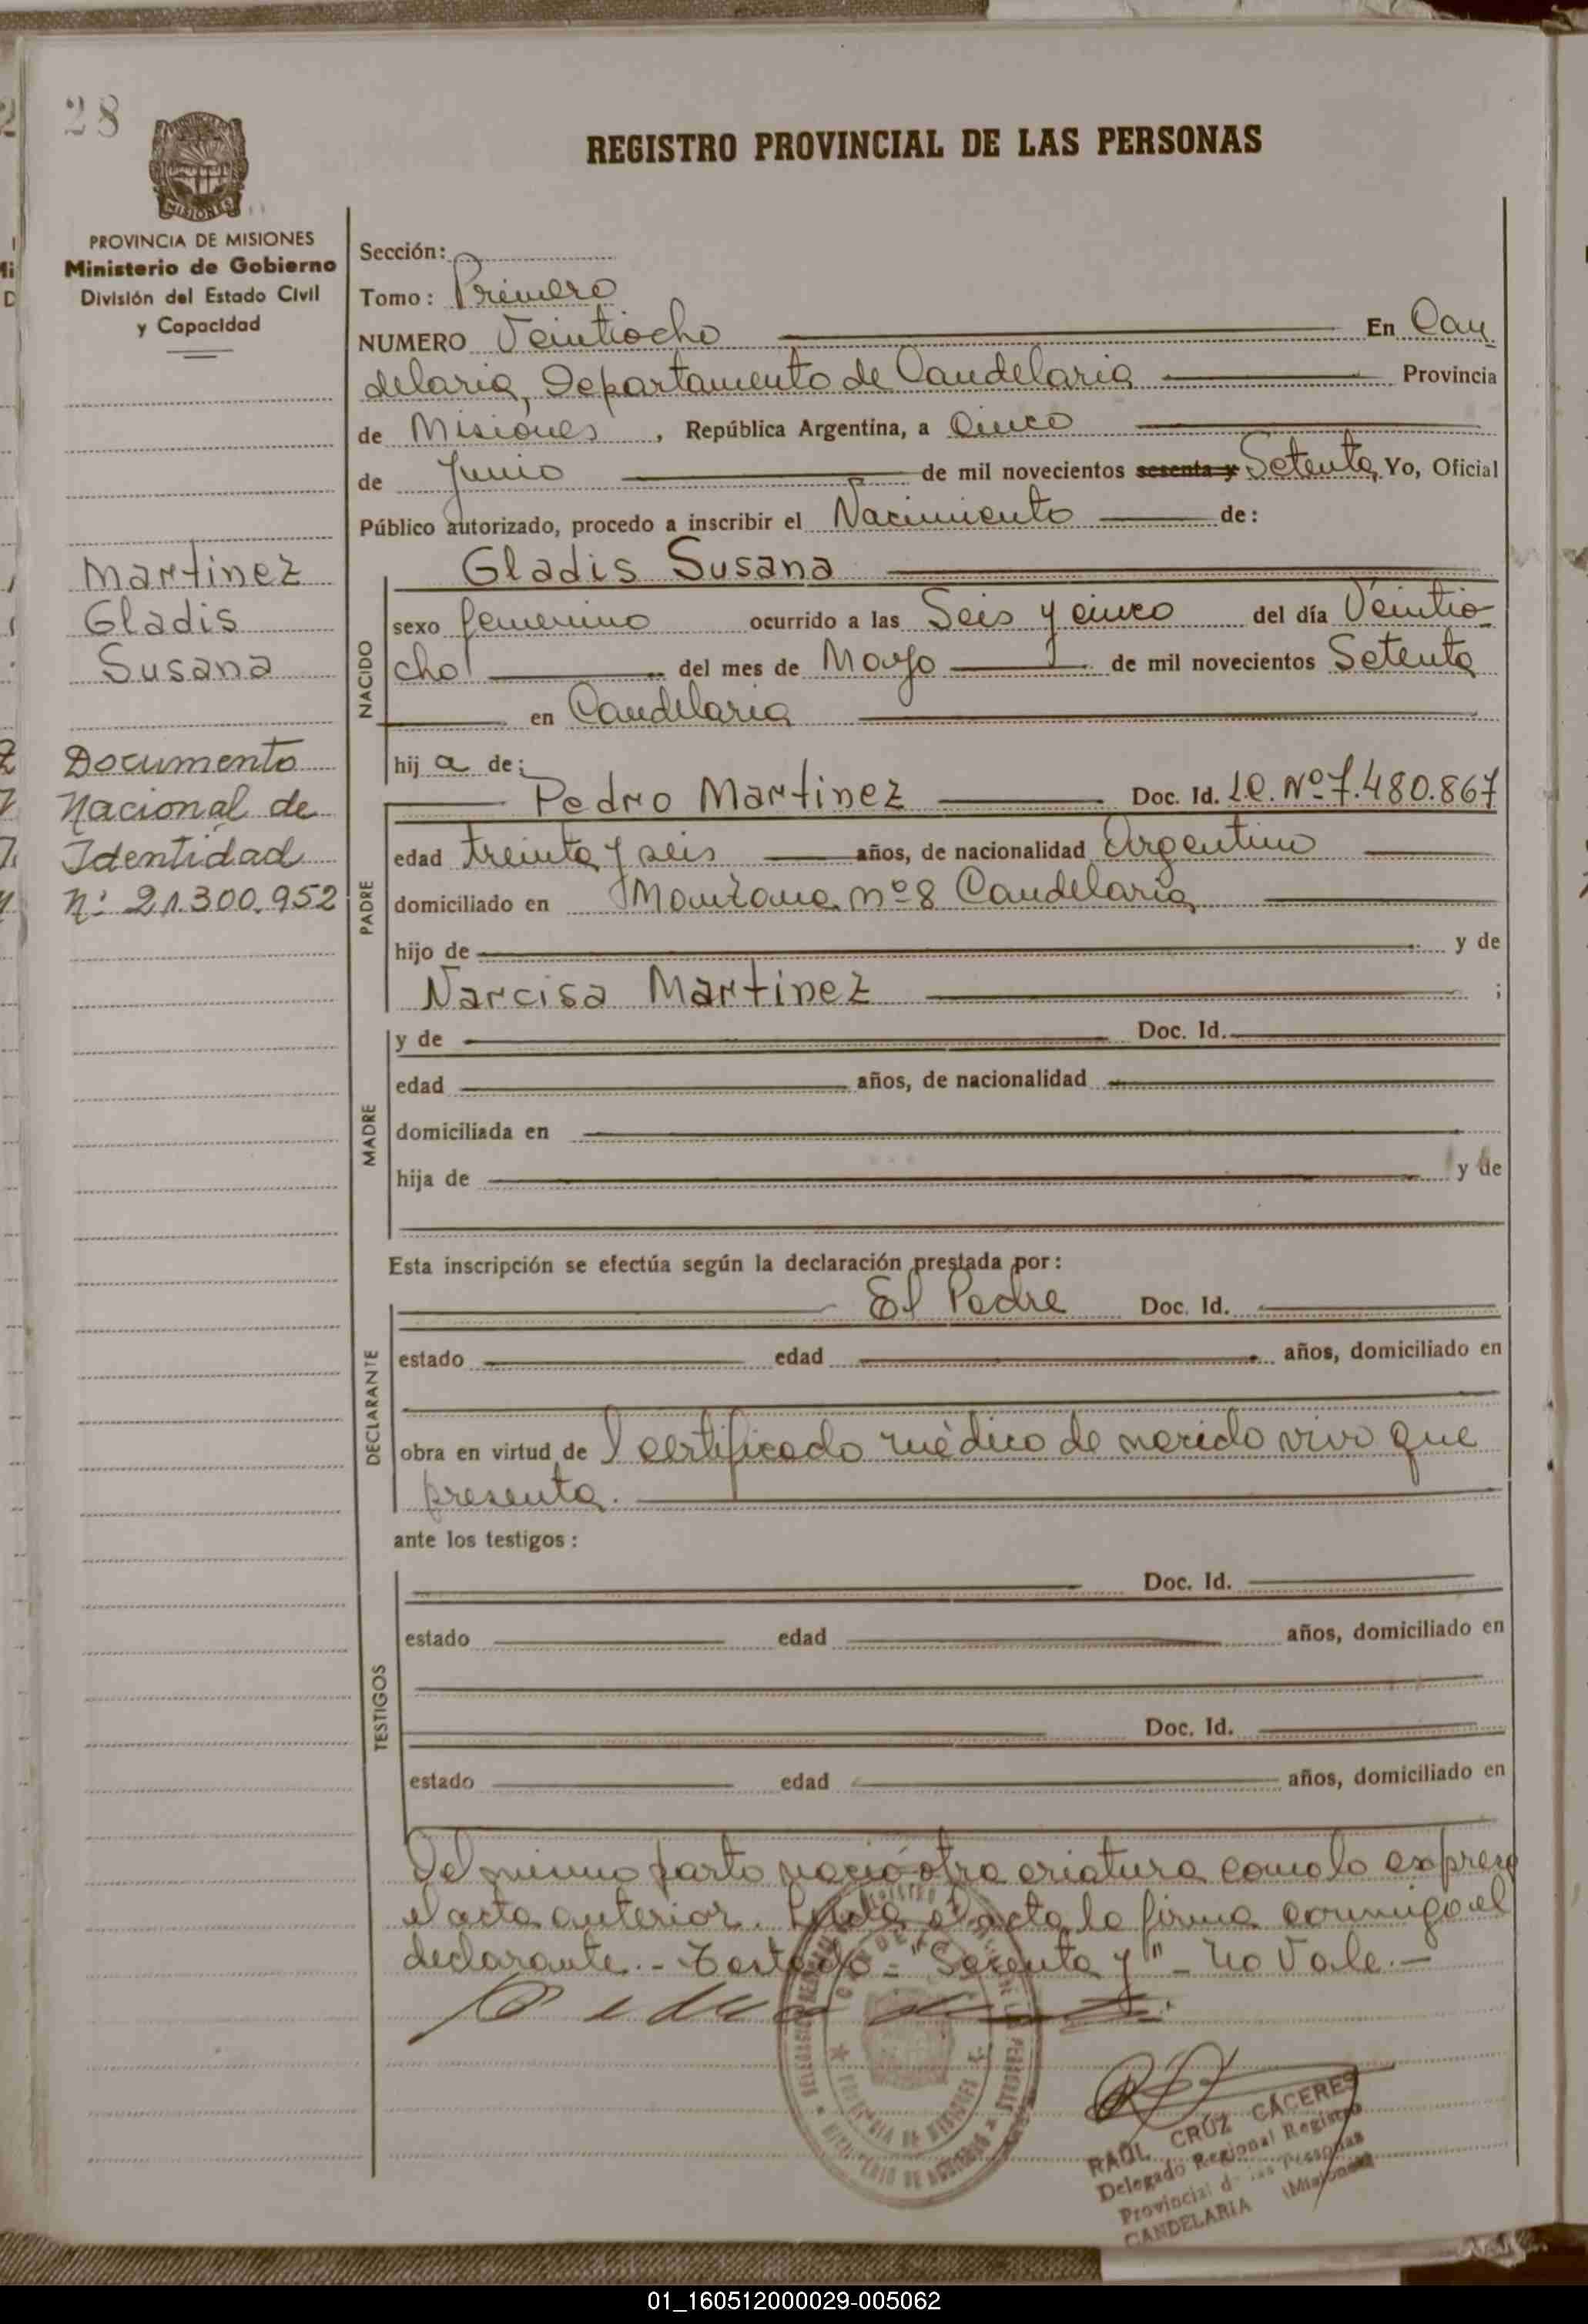 28
MISIONES
PROVINCIA DE MISIONES
Ministerio de Gobierno
División del Estado Civil
y Capacidad
Martinez
Gladis
Susana
Documento
Nacional de
Identidad
N: 21.300.952
REGISTRO PROVINCIAL DE LAS PERSONAS
Sección:
Tomo: Primero
NUMERO Veintiocho En Can
delaria, Departamento de Candelaria Provincia
de Misiones, República Argentina, a Cinco
de Junio de mil novecientos sesenta y Setenta Yo, Oficial
Público autorizado, procedo a inscribir el Nacimiento de:
Gladis Susana
NACIDO
sexo femenino ocurrido a las Seis y cinco del día Veintio-
cho del mes de Mayo de mil novecientos Setenta
en Candelaria
hij a de:
PADRE
Pedro Martinez Doc. Id. L.E. Nº 7.480.867
edad treinta y seis años, de nacionalidad Argentino
domiciliado en Manzana nº 8 Candelaria
hijo de y de
Narcisa Martinez ;
MADRE
y de Doc. Id.
edad años, de nacionalidad
domiciliada en
hija de y de
Esta inscripción se efectúa según la declaración prestada por:
DECLARANTE
El Padre Doc. Id.
estado edad años, domiciliado en
obra en virtud de l certificado médico de nacido vivo que
presenta.
ante los testigos:
TESTIGOS
Doc. Id.
estado edad años, domiciliado en
Doc. Id.
estado edad años, domiciliado en
Del mismo parto nació otra criatura como lo expresa
el acta anterior. Leida el acta la firma conmigo el
declarante.- Testado = "Sesenta y" - No Vale.-
RAUL CRUZ CACERES
Delegado Regional Registro
Provincial de las Personas
CANDELARIA (Misiones)
01_160512000029-005062